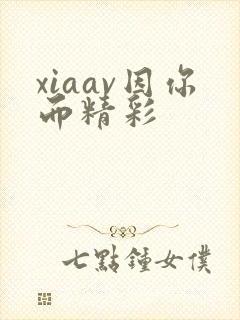 xiaav因你
而精彩
七點鐘女僕